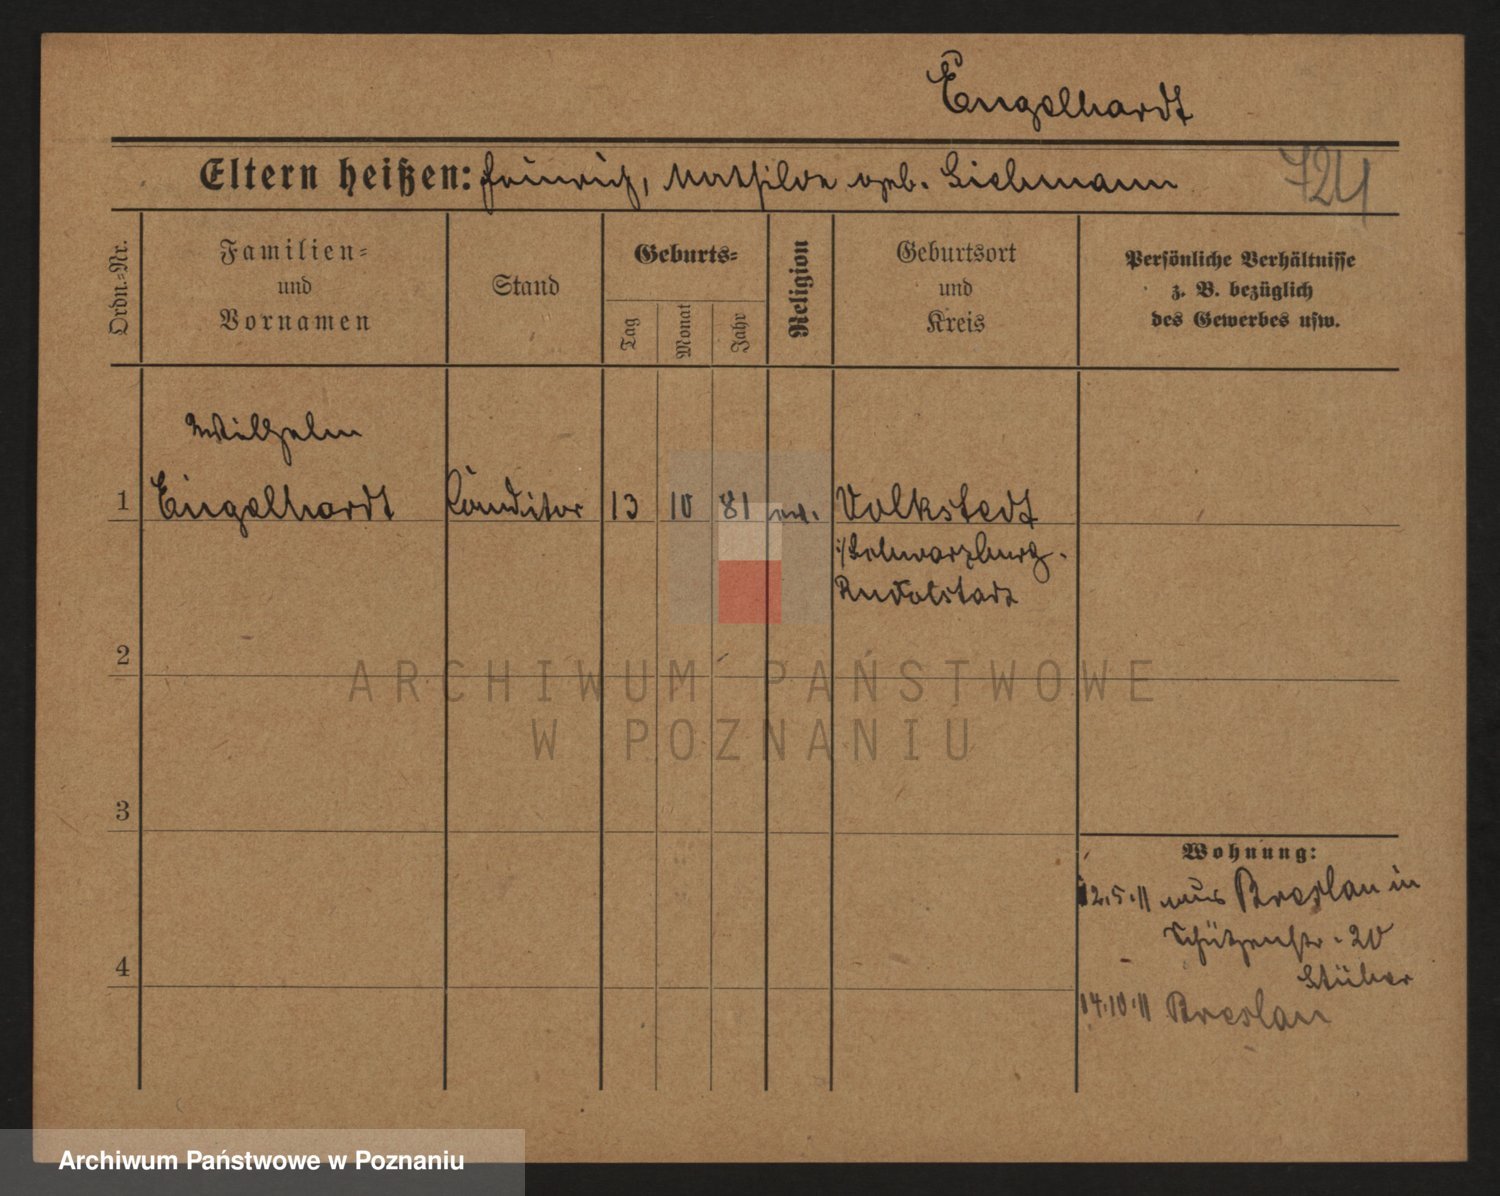 Engelhardt
Eltern heißen: Heinrich, Mathilde geb. Liebmann
724
Ordn.-Nr.
Familien-
und
Vornamen
Stand
Geburts-
Tag
Monat
Jahr
Religion
Geburtsort
und
Kreis
Persönliche Verhältnisse
z. B. bezüglich
des Gewerbes usw.
Wilhelm
1 Engelhardt Conditor 13 10 81 ev. Volkstedt
i/Schwarzburg-
Rudolstadt
2
3
4
ARCHIWUM PAŃSTWOWE
W POZNANIU
Wohnung:
12.5.11 aus Breslau in
Schützenstr. 20
Stüber
14.10.11 Breslau
Archiwum Państwowe w Poznaniu